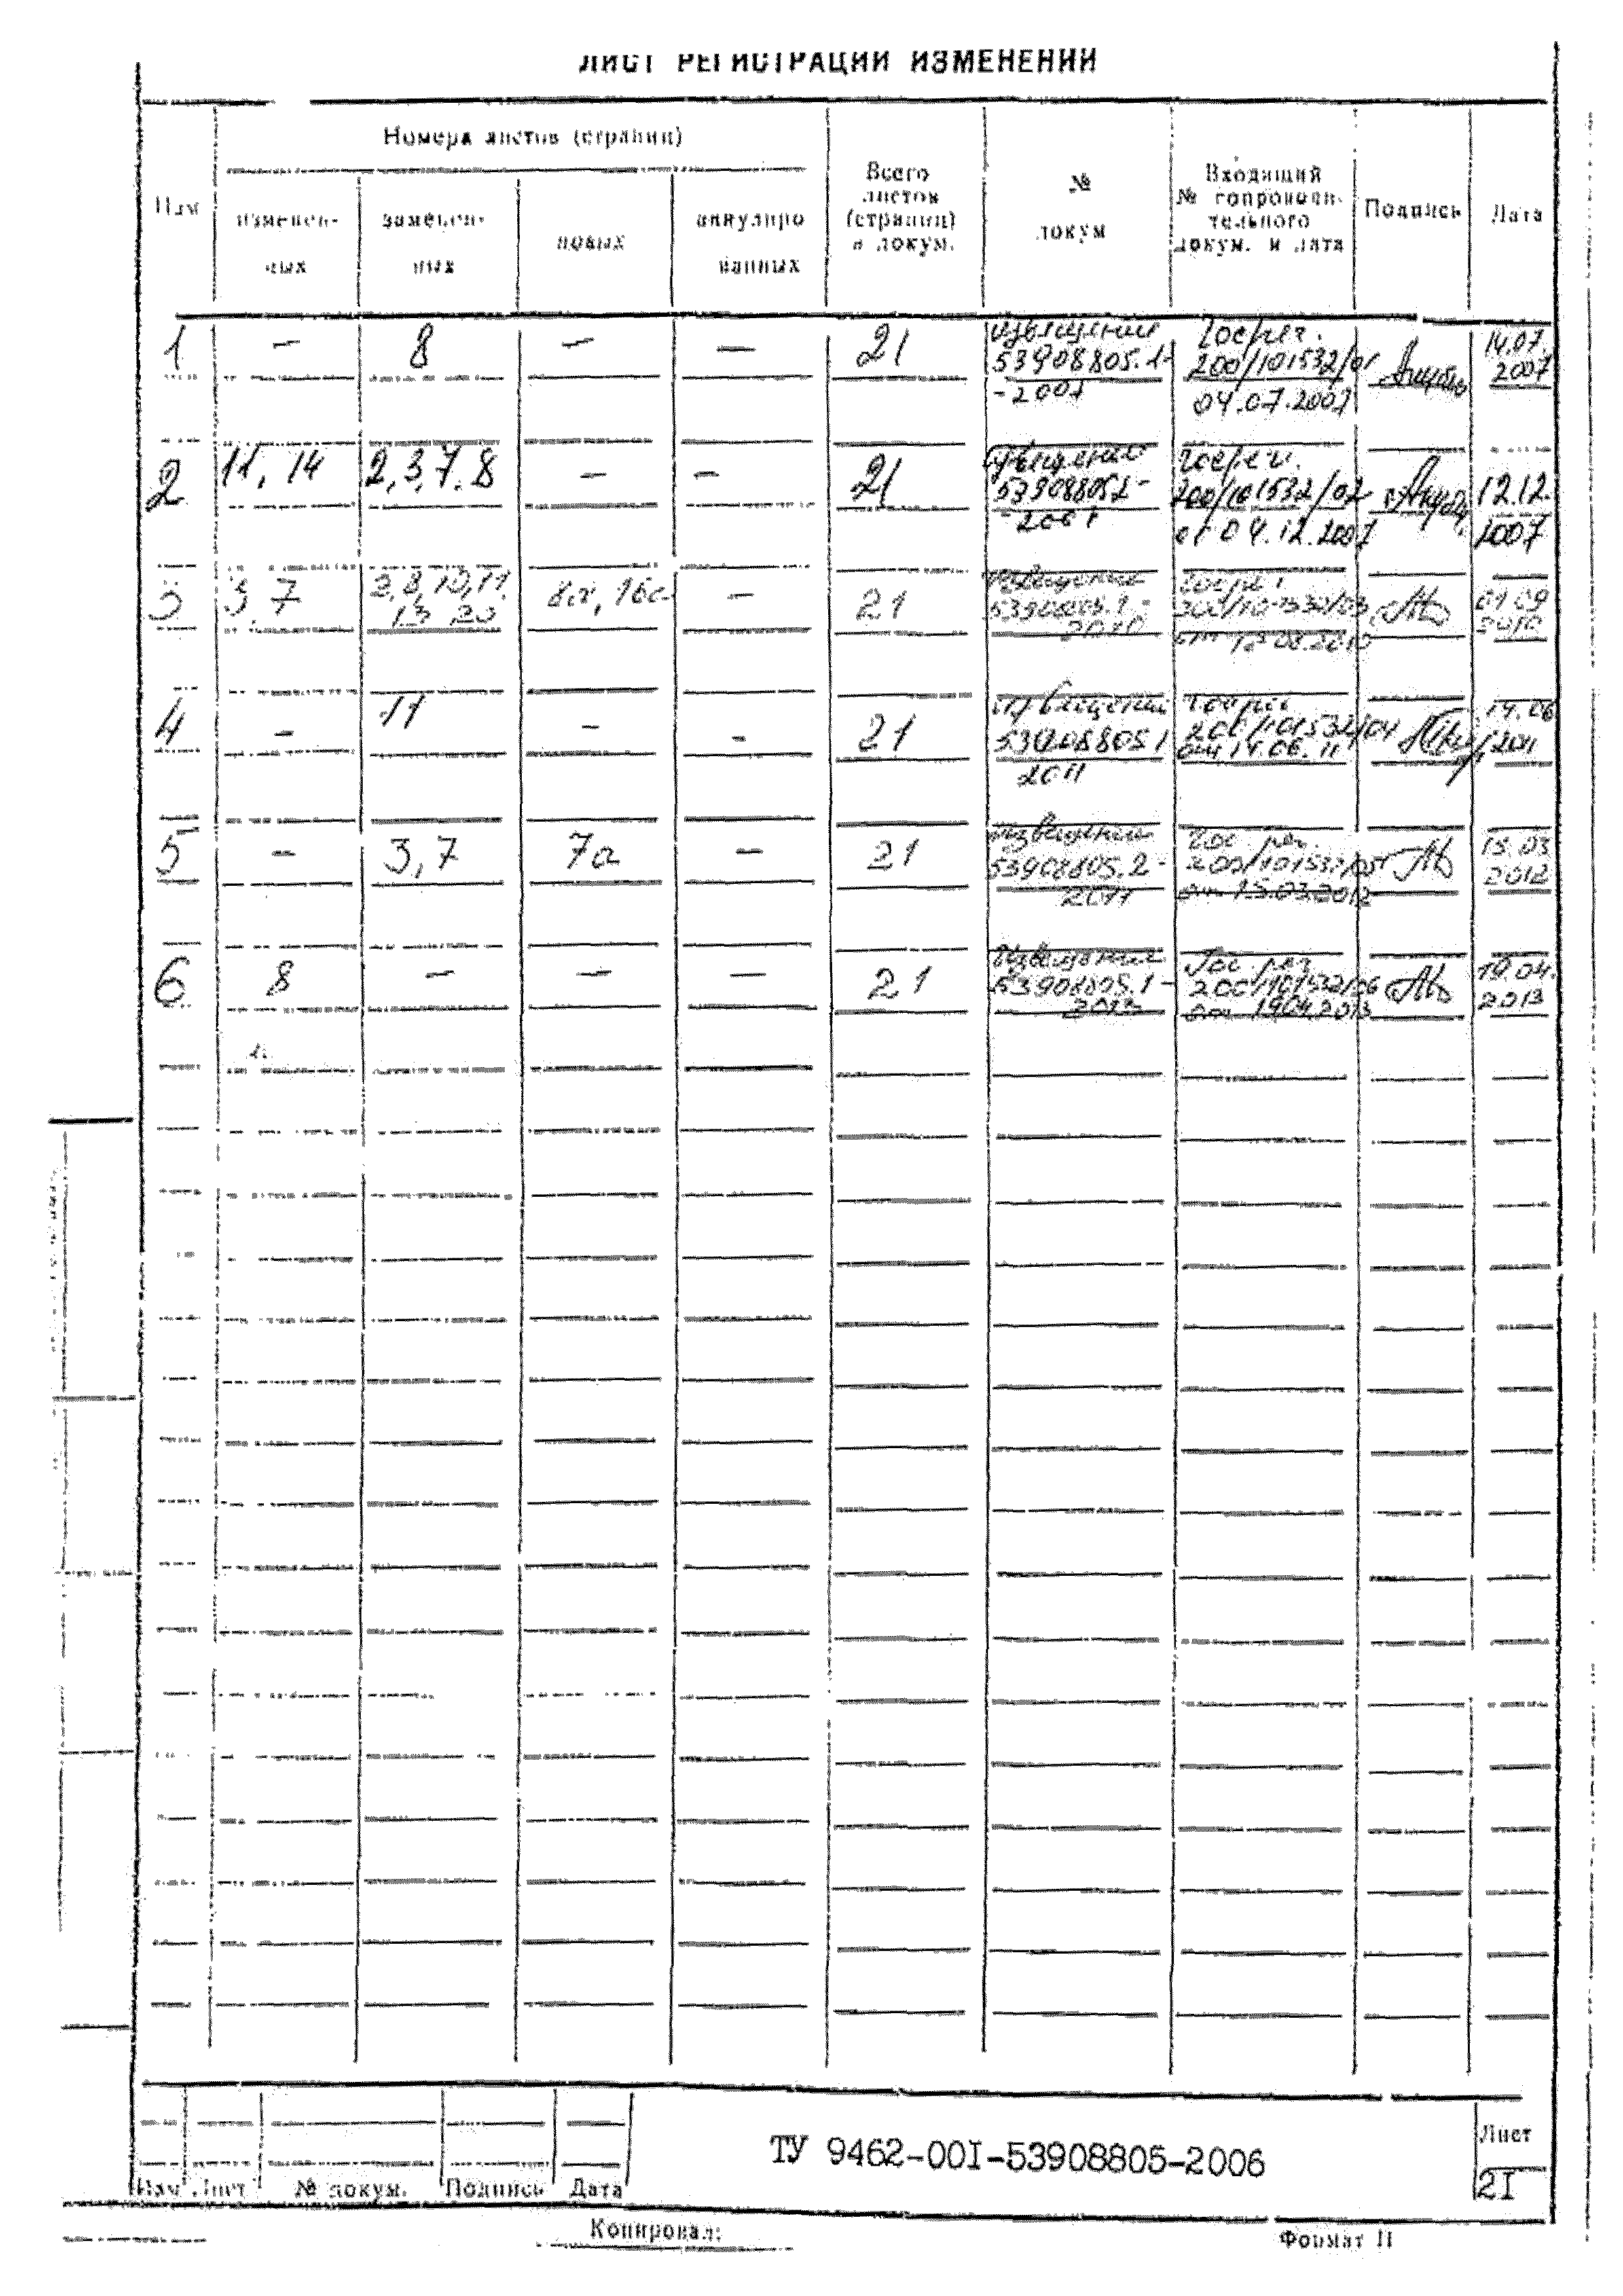 ЛИСТ РЕГИСТРАЦИИ ИЗМЕНЕНИЙ
Номера листов (страниц)
Изм
изменен-
ных
заменен-
ных
новых
аннулиро
ванных
Всего
листов
(страниц)
в докум.
№
докум
Входящий
№ сопроводи-
тельного
докум. и дата
Подпись
Дата
1 – 8 – – 21
извещение
53908805.1-
-2007
Госрег.
200/101532/01
04.07.2007
14.07.
2007
2 11, 14 2, 3, 7, 8 – – 21
Извещение
-2007
Госрег.
200/101532/02
от 04.12.2007
12.12.
2007
3 3, 7
2, 8, 10, 11,
13 20
8а, 16а – 21
Извещение
53908805.1-
2010
Госрег
200/101532/03
2010
01 09
2010
4 – 11 – – 21
Извещение
53908805 1
2011
Госрег
200/101532/04
от 14.06.11
14.06
2011
5 – 3, 7 7а – 21
Извещение
53908805.2-
2011
Гос рег.
200/101532/05
от 15.03.2012
15.03
2012
6 8 – – – 21
Извещение
53908805.1-
2013
Гос рег
200/101532/06
от 19.04.2013
19.04.
2013
ТУ 9462-00I-53908805-2006
Лист
2I
Изм Лист № докум. Подпись Дата
Копировал:
Формат II